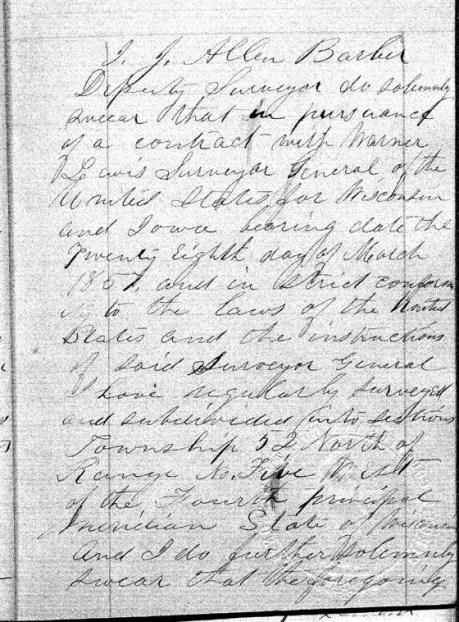 I. J. Allen Barber
Deputy Surveyor do solemnly
swear that in pursuance
of a contract with Warner
Lewis Surveyor General of the
United States for Wisconsin
and Iowa bearing date the
Twenty Eighth day of March
1857, and in strict conform
ity to the laws of the United
States and the instructions
of said Surveyor General
I have regularly surveyed
and subdivided into sections
Township 32 North of
Range No. Five West
of the Fourth principal
Meridian State of Wisconsin
And I do further Solemnly
swear that the foregoing